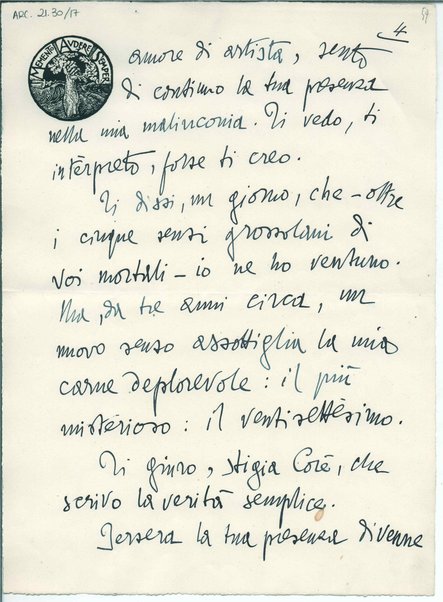 ARC. 21.30/17
MEMENTO AUDERE SEMPER
4
amore di artista, sento
di continuo la tua presenza
nella mia malinconia. Ti vedo, ti
intèrpreto, forse ti creo.
Ti dissi, un giorno, che – oltre
i cinque sensi grossolani di
voi mortali – io ne ho ventuno.
Ma, da tre anni circa, un
nuovo senso assottiglia la mia
carne deplorevole: il più
misterioso: il ventisettèsimo.
Ti giuro, stigia Corè, che
scrivo la verità semplice.
Iersera la tua presenza divenne